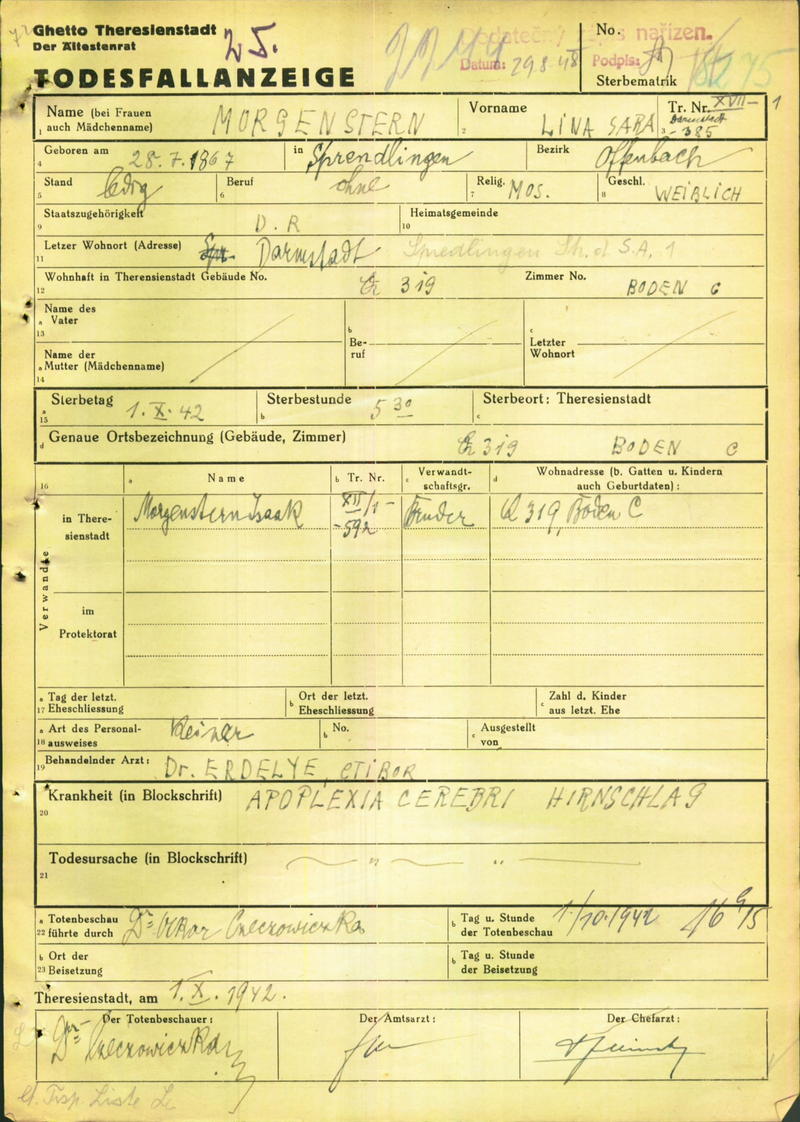 Ghetto Theresienstadt
Der Ältestenrat
25.
TODESFALLANZEIGE
nařízen.
Datum: 29.8.48 Podpis:
No.
Sterbematrik
Name (bei Frauen auch Mädchenname) MORGENSTERN
Vorname LINA SARA
Tr. Nr. XVII-1 Darmstadt -385
Geboren am 28.7.1867 in Sprendlingen Bezirk Offenbach
Stand ledig Beruf ohne Relig. MOS. Geschl. WEIBLICH
Staatszugehörigkeit D.R Heimatsgemeinde
Letzer Wohnort (Adresse) Darmstadt
Wohnhaft in Theresienstadt Gebäude No. 319 Zimmer No. BODEN C
Name des Vater
Beruf
Letzter Wohnort
Name der Mutter (Mädchenname)
Sterbetag 1.X.42 Sterbestunde 5 30 Sterbeort: Theresienstadt
Genaue Ortsbezeichnung (Gebäude, Zimmer) 319 BODEN C
Name Tr. Nr. Verwandtschaftsgr. Wohnadresse (b. Gatten u. Kindern auch Geburtdaten):
Verwandte
in Theresienstadt Morgenstern Isaak XII/1-592 Bruder 319, Boden C
im Protektorat
Tag der letzt. Eheschliessung
Ort der letzt. Eheschliessung
Zahl d. Kinder aus letzt. Ehe
Art des Personalausweises Keiner No. Ausgestellt von
Behandelnder Arzt: Dr. ERDELYE, CTIBOR
Krankheit (in Blockschrift) APOPLEXIA CEREBRI HIRNSCHLAG
Todesursache (in Blockschrift) " "
Totenbeschau führte durch Dr. Oskar Czeczowiczka
Tag u. Stunde der Totenbeschau 1/10.1942
Ort der Beisetzung
Tag u. Stunde der Beisetzung
Theresienstadt, am 1.X.1942.
Der Totenbeschauer: Der Amtsarzt: Der Chefarzt:
Dr. Czeczowiczka